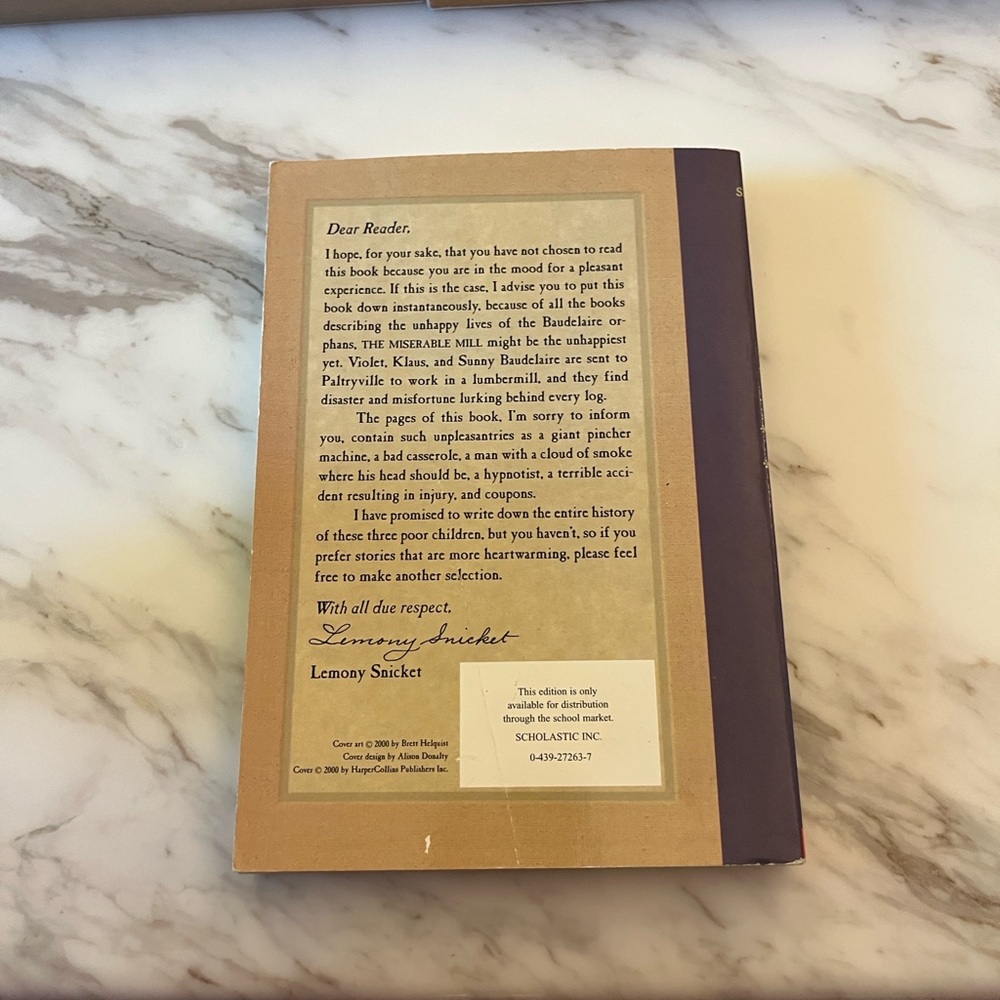 Dear Reader,
I hope, for your sake, that you have not chosen to read
this book because you are in the mood for a pleasant
experience. If this is the case, I advise you to put this
book down instantaneously, because of all the books
describing the unhappy lives of the Baudelaire or-
phans, THE MISERABLE MILL might be the unhappiest
yet. Violet, Klaus, and Sunny Baudelaire are sent to
Paltryville to work in a lumbermill, and they find
disaster and misfortune lurking behind every log.
The pages of this book, I'm sorry to inform
you, contain such unpleasantries as a giant pincher
machine, a bad casserole, a man with a cloud of smoke
where his head should be, a hypnotist, a terrible acci-
dent resulting in injury, and coupons.
I have promised to write down the entire history
of these three poor children, but you haven't, so if you
prefer stories that are more heartwarming, please feel
free to make another selection.
With all due respect,
Lemony Snicket
Lemony Snicket
This edition is only
available for distribution
through the school market.
SCHOLASTIC INC.
0-439-27263-7
Cover art © 2000 by Brett Helquist
Cover design by Alison Donalty
Cover © 2000 by HarperCollins Publishers Inc.
S